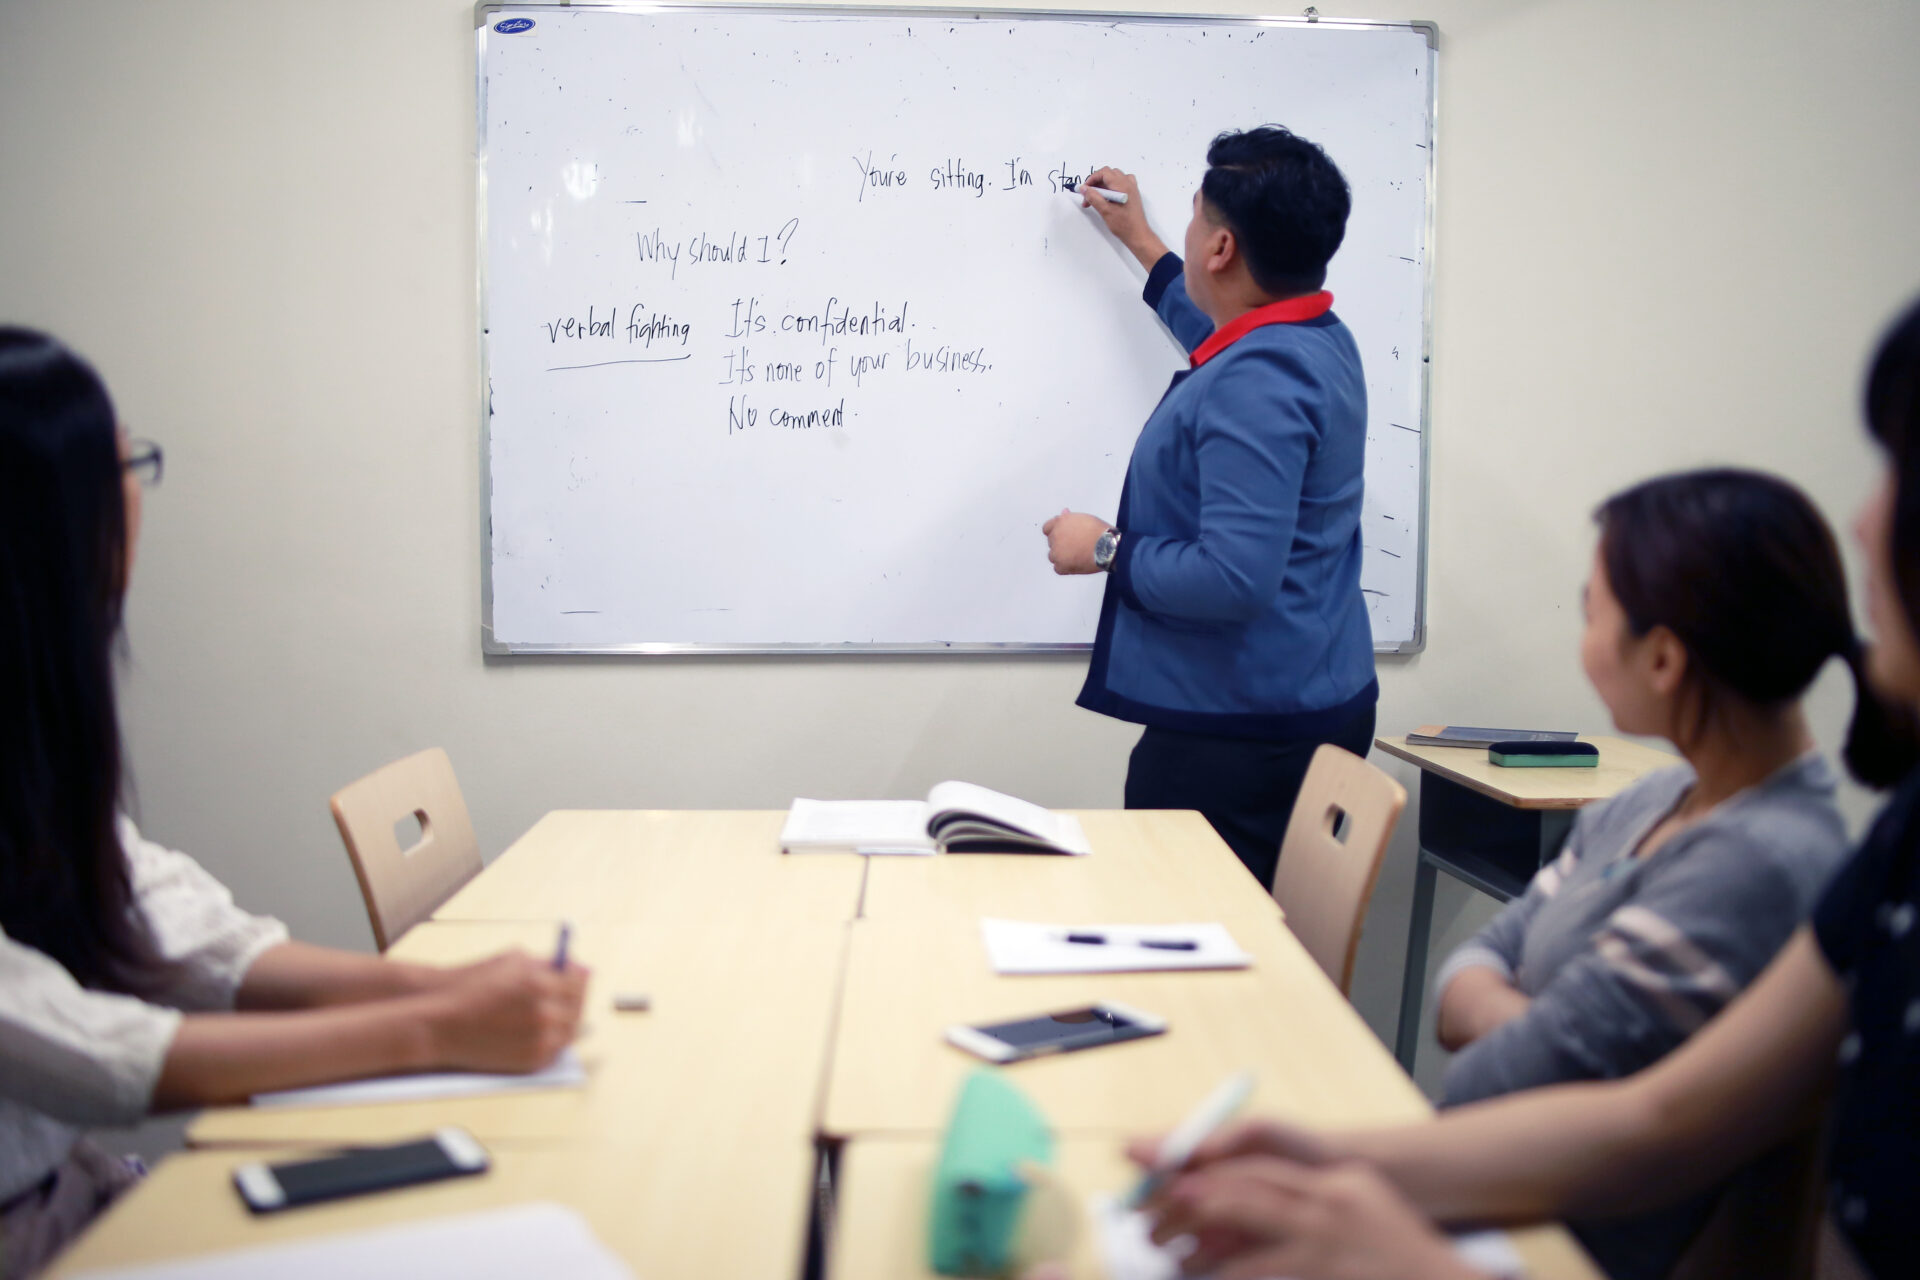 You're sitting. I'm stand
Why should I?
verbal fighting
It's confidential.
It's none of your business.
No comment.